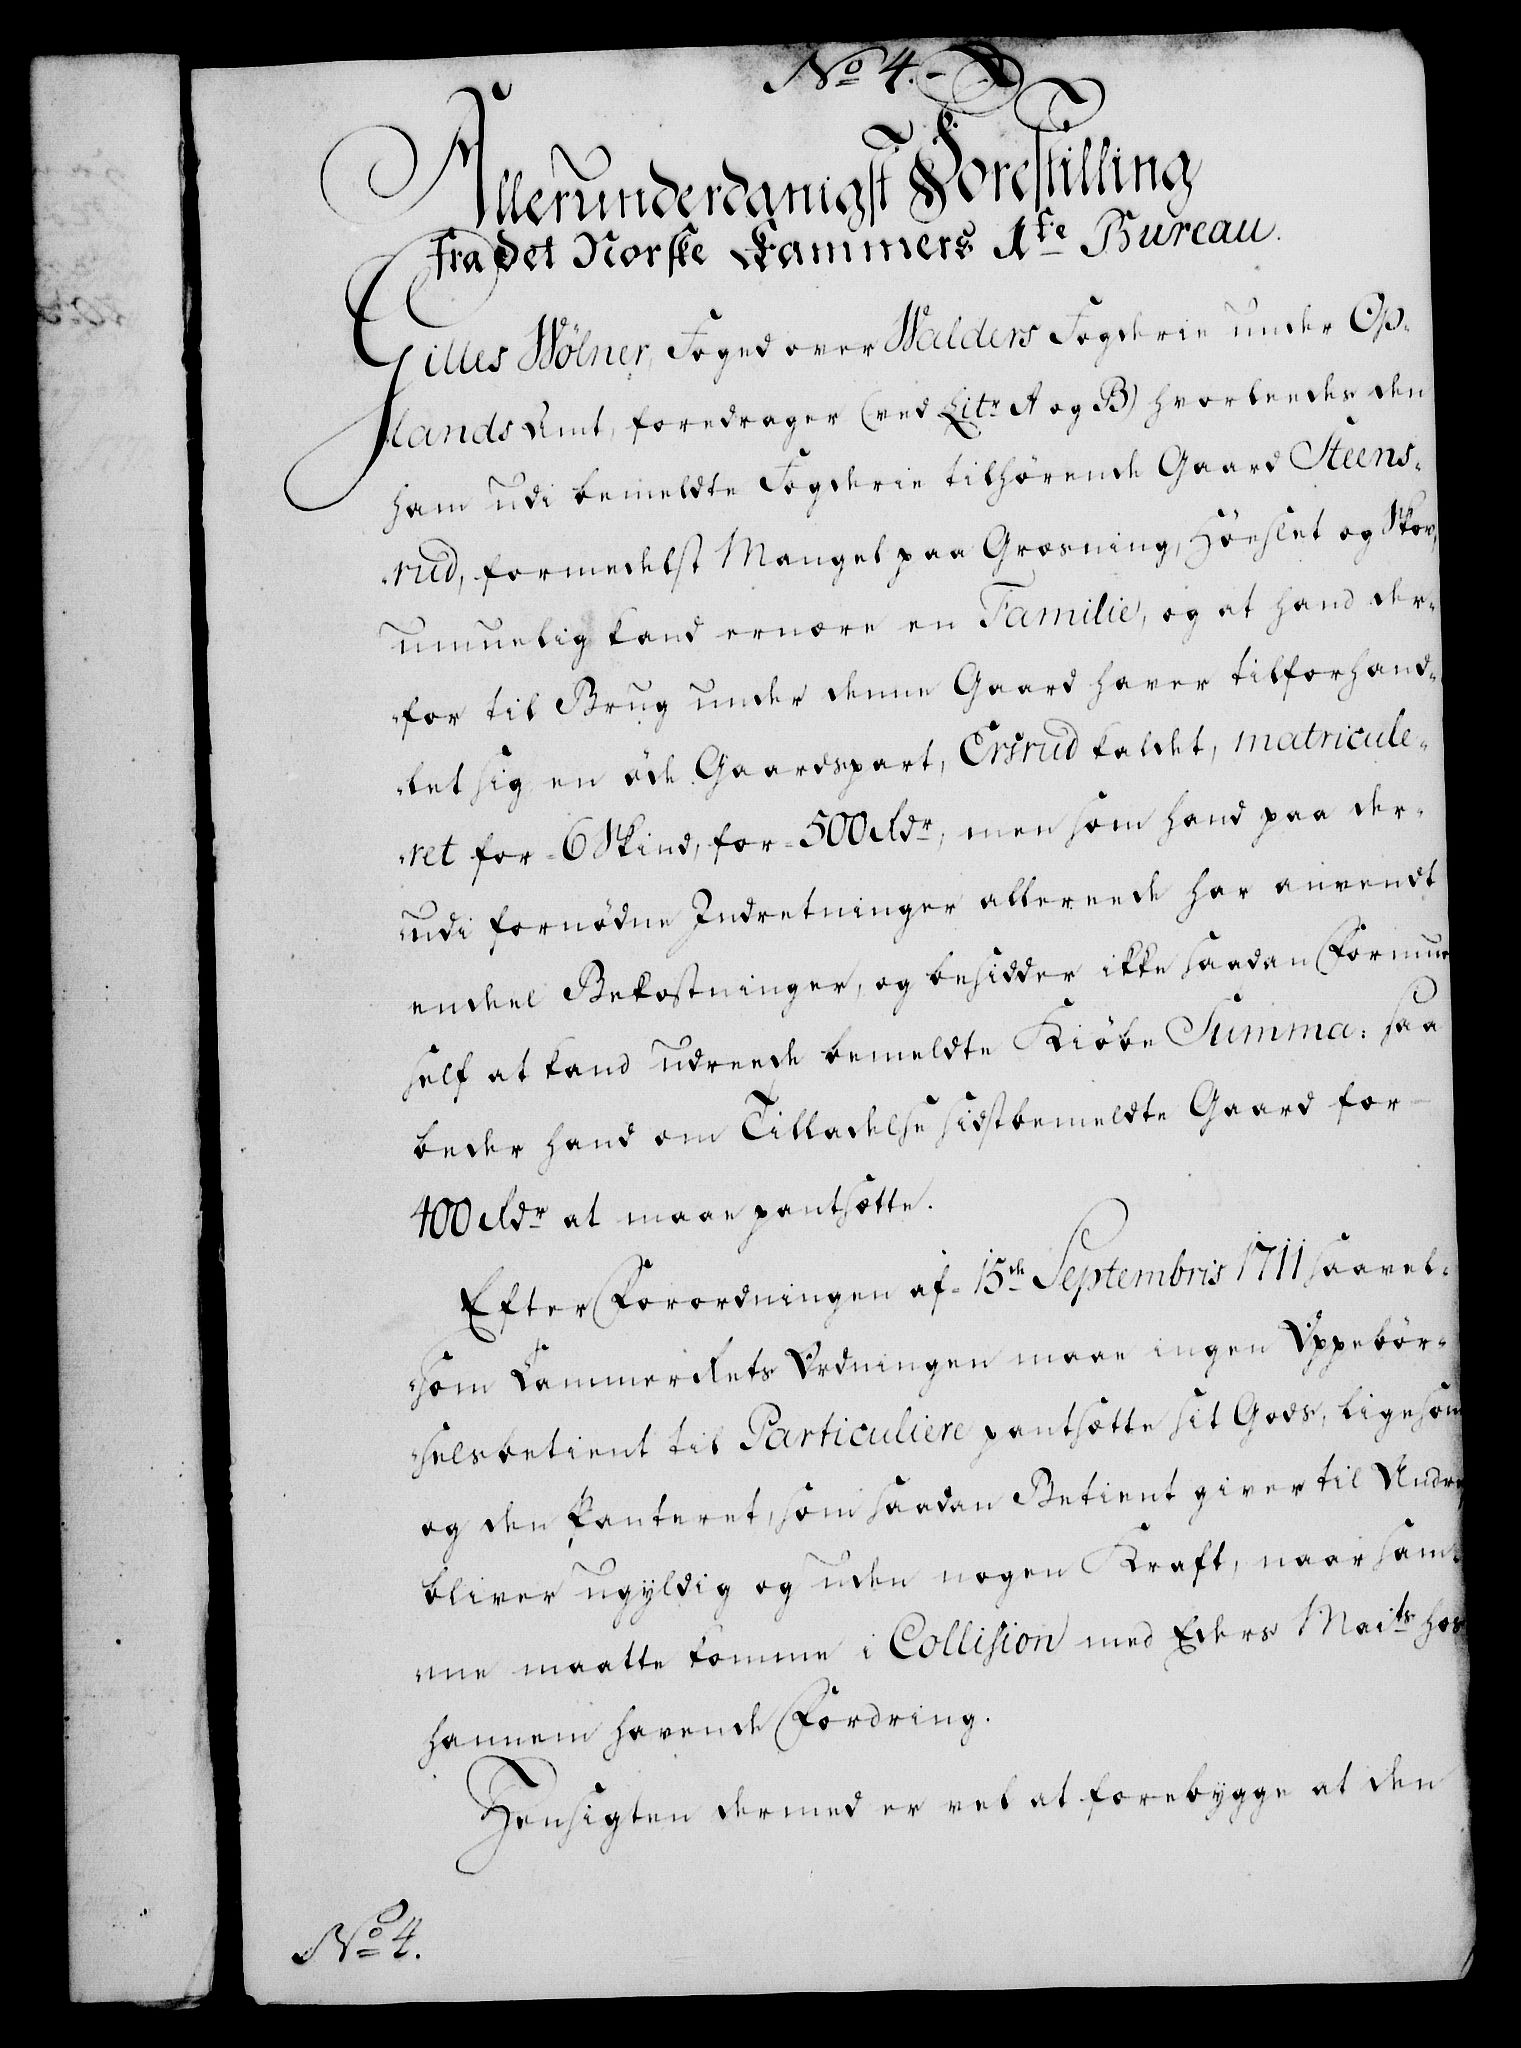 No 4.
Allerunderdanigst Forestilling
fra det Norske Kammers 1ste Bureau.
Gilles Wölner, Foged over Walders Fogderie under Op-
lands Amt, foredrager (ved Litr A og B) hvorledes den
ham udi bemeldte Fogderie tilhørende Gaard Steens-
rud, formedelst Mangel paa Græsning, Höeslet og Skov,
umuelig kand ernære en Familie, og at hand der-
for til Brug under denne Gaard haver tilforhand-
let sig en øde Gaardspart, Ersrud kaldet, matricule-
ret for 6 Skind, for 500 Rdr, men som hand paa der-
udi fornødne Indretninger allereede har anvendt
endeel Bekostninger, og besidder ikke saadan Formue
self at kand udreede bemeldte Kiøbe Summa: saa
beder hand om Tilladelse sidstbemeldte Gaard for
400 Rdr at maae pantsætte.
Efter Forordningen af 15de Septembris 1711 saavel-
som Cammer Rets Ordningen maae ingen Oppebör-
selsbetient til Particuliere pantsætte sit Gods, ligesom
og den Panteret, som saadan Betient giver til Andre
bliver ugyldig og uden nogen Kraft, naar sam-
me maatte komme i Collision med Eders Maits hos
hannem havende Fordring.
Hensigten dermed er vel at forebygge at den
No 4.